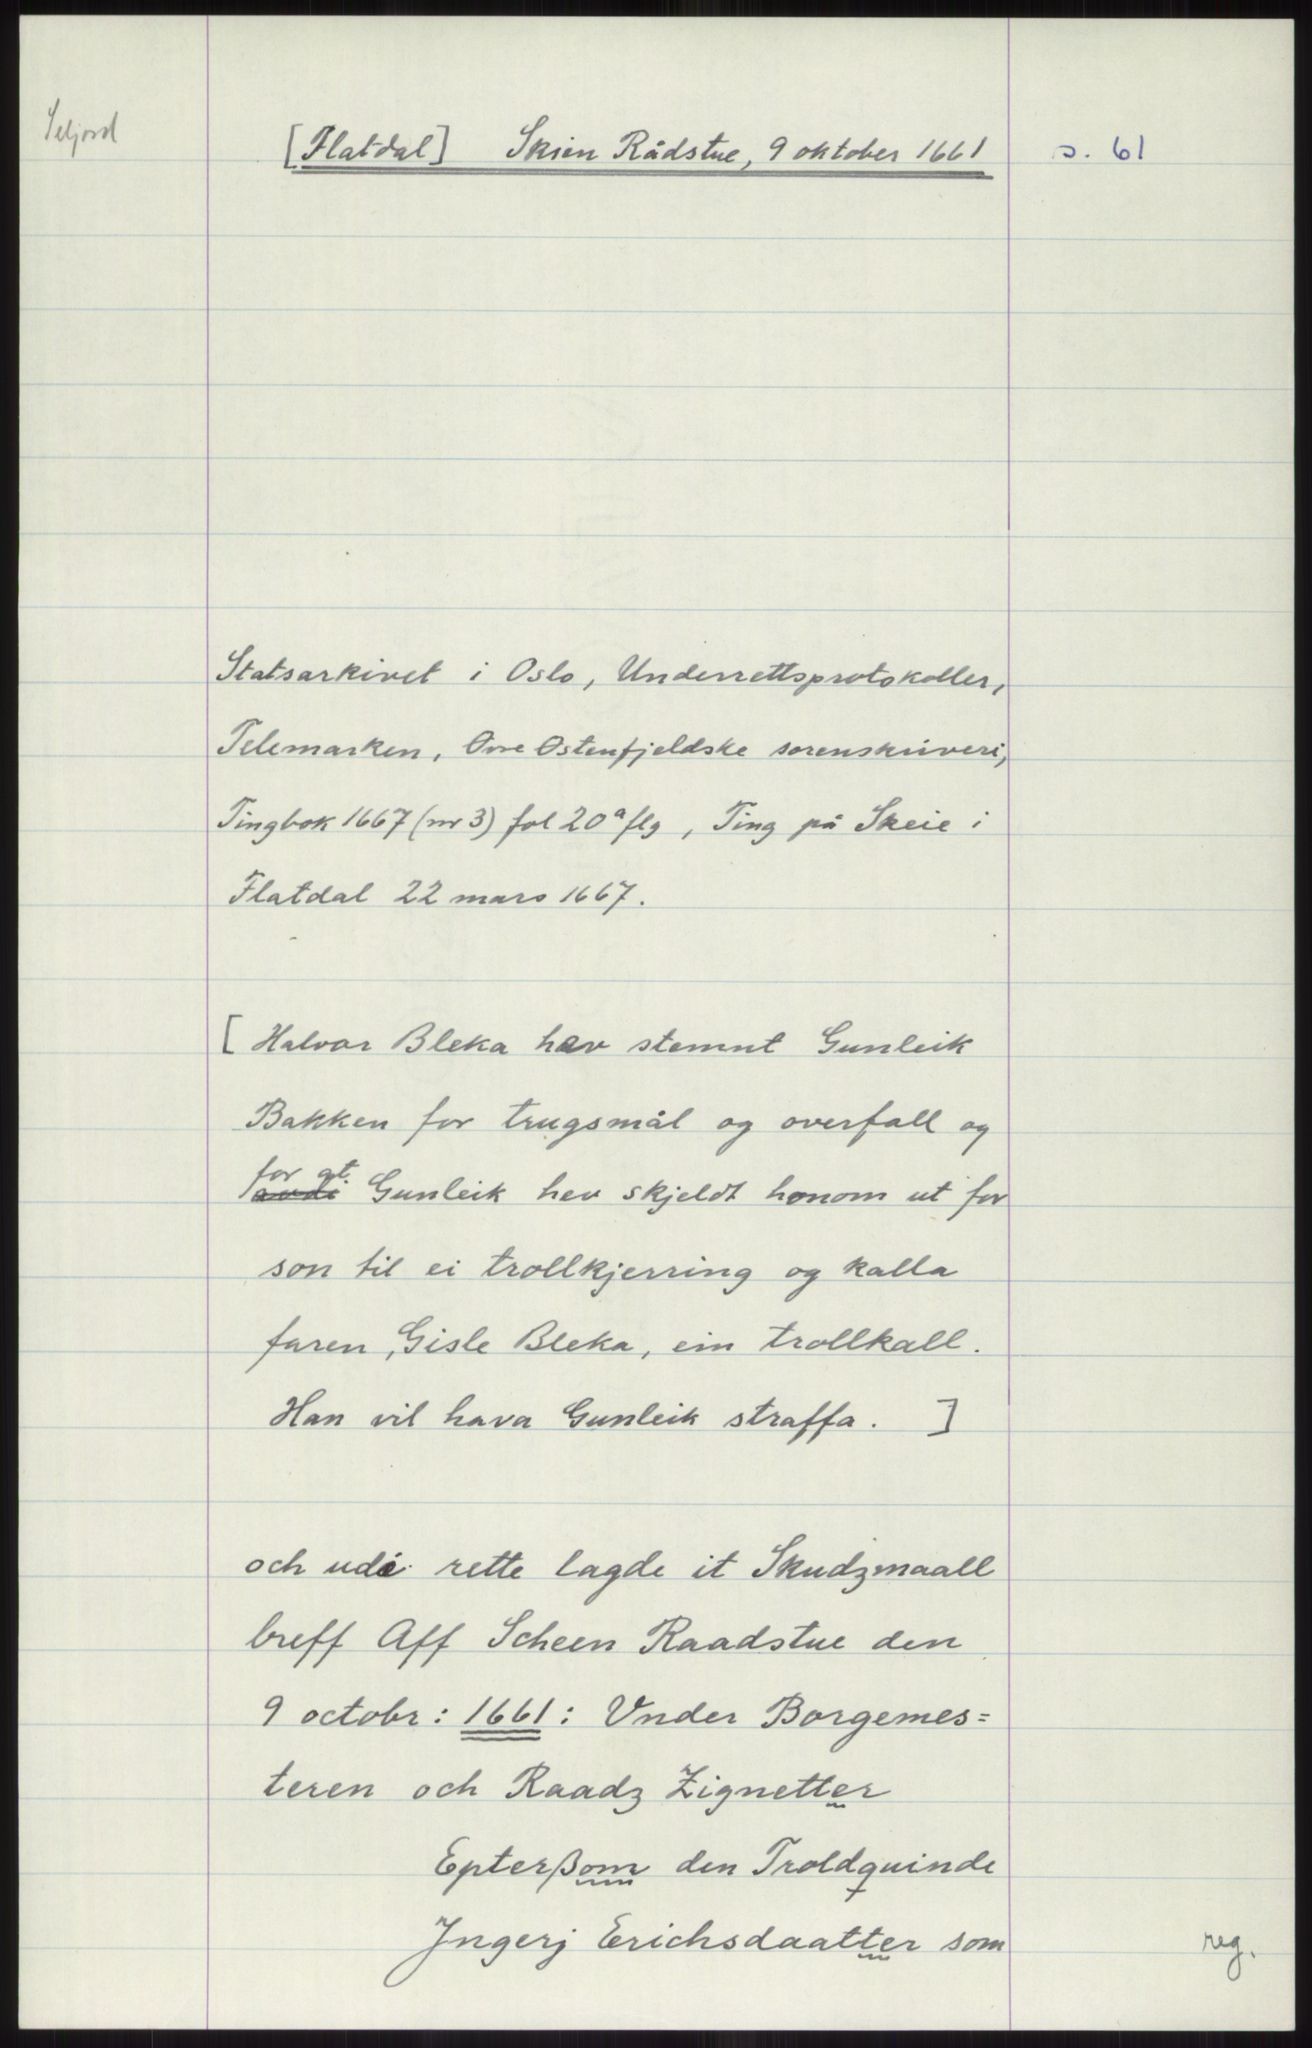 Seljord
[Flatdal] Skien Rådstue, 9 oktober 1661 s. 61
Statsarkivet i Oslo, Underrettsprotokoller,
Telemarken, Øvre Østenfjeldske sorenskriveri,
Tingbok 1667 (nr 3) fol 20ª flg, Ting på Skeie i
Flatdal 22 mars 1667.
[Halvor Bleka hev stemnt Gunleik
Bakken for trugsmål og overfall og
for at Gunleik hev skjeldt honom ut for
son til ei trollkjerring og kalla
faren, Gisle Bleka, ein trollkall.
Han vil hava Gunleik straffa. ]
och udi rette lagde it Skudzmaall
breff Aff Scheen Raadstue den
9 octobr: 1661: Vnder Borgemes=
teren och Raadz Zignetter
Epterßom den Troldquinde
Jngerj Erichsdaatter som
reg.